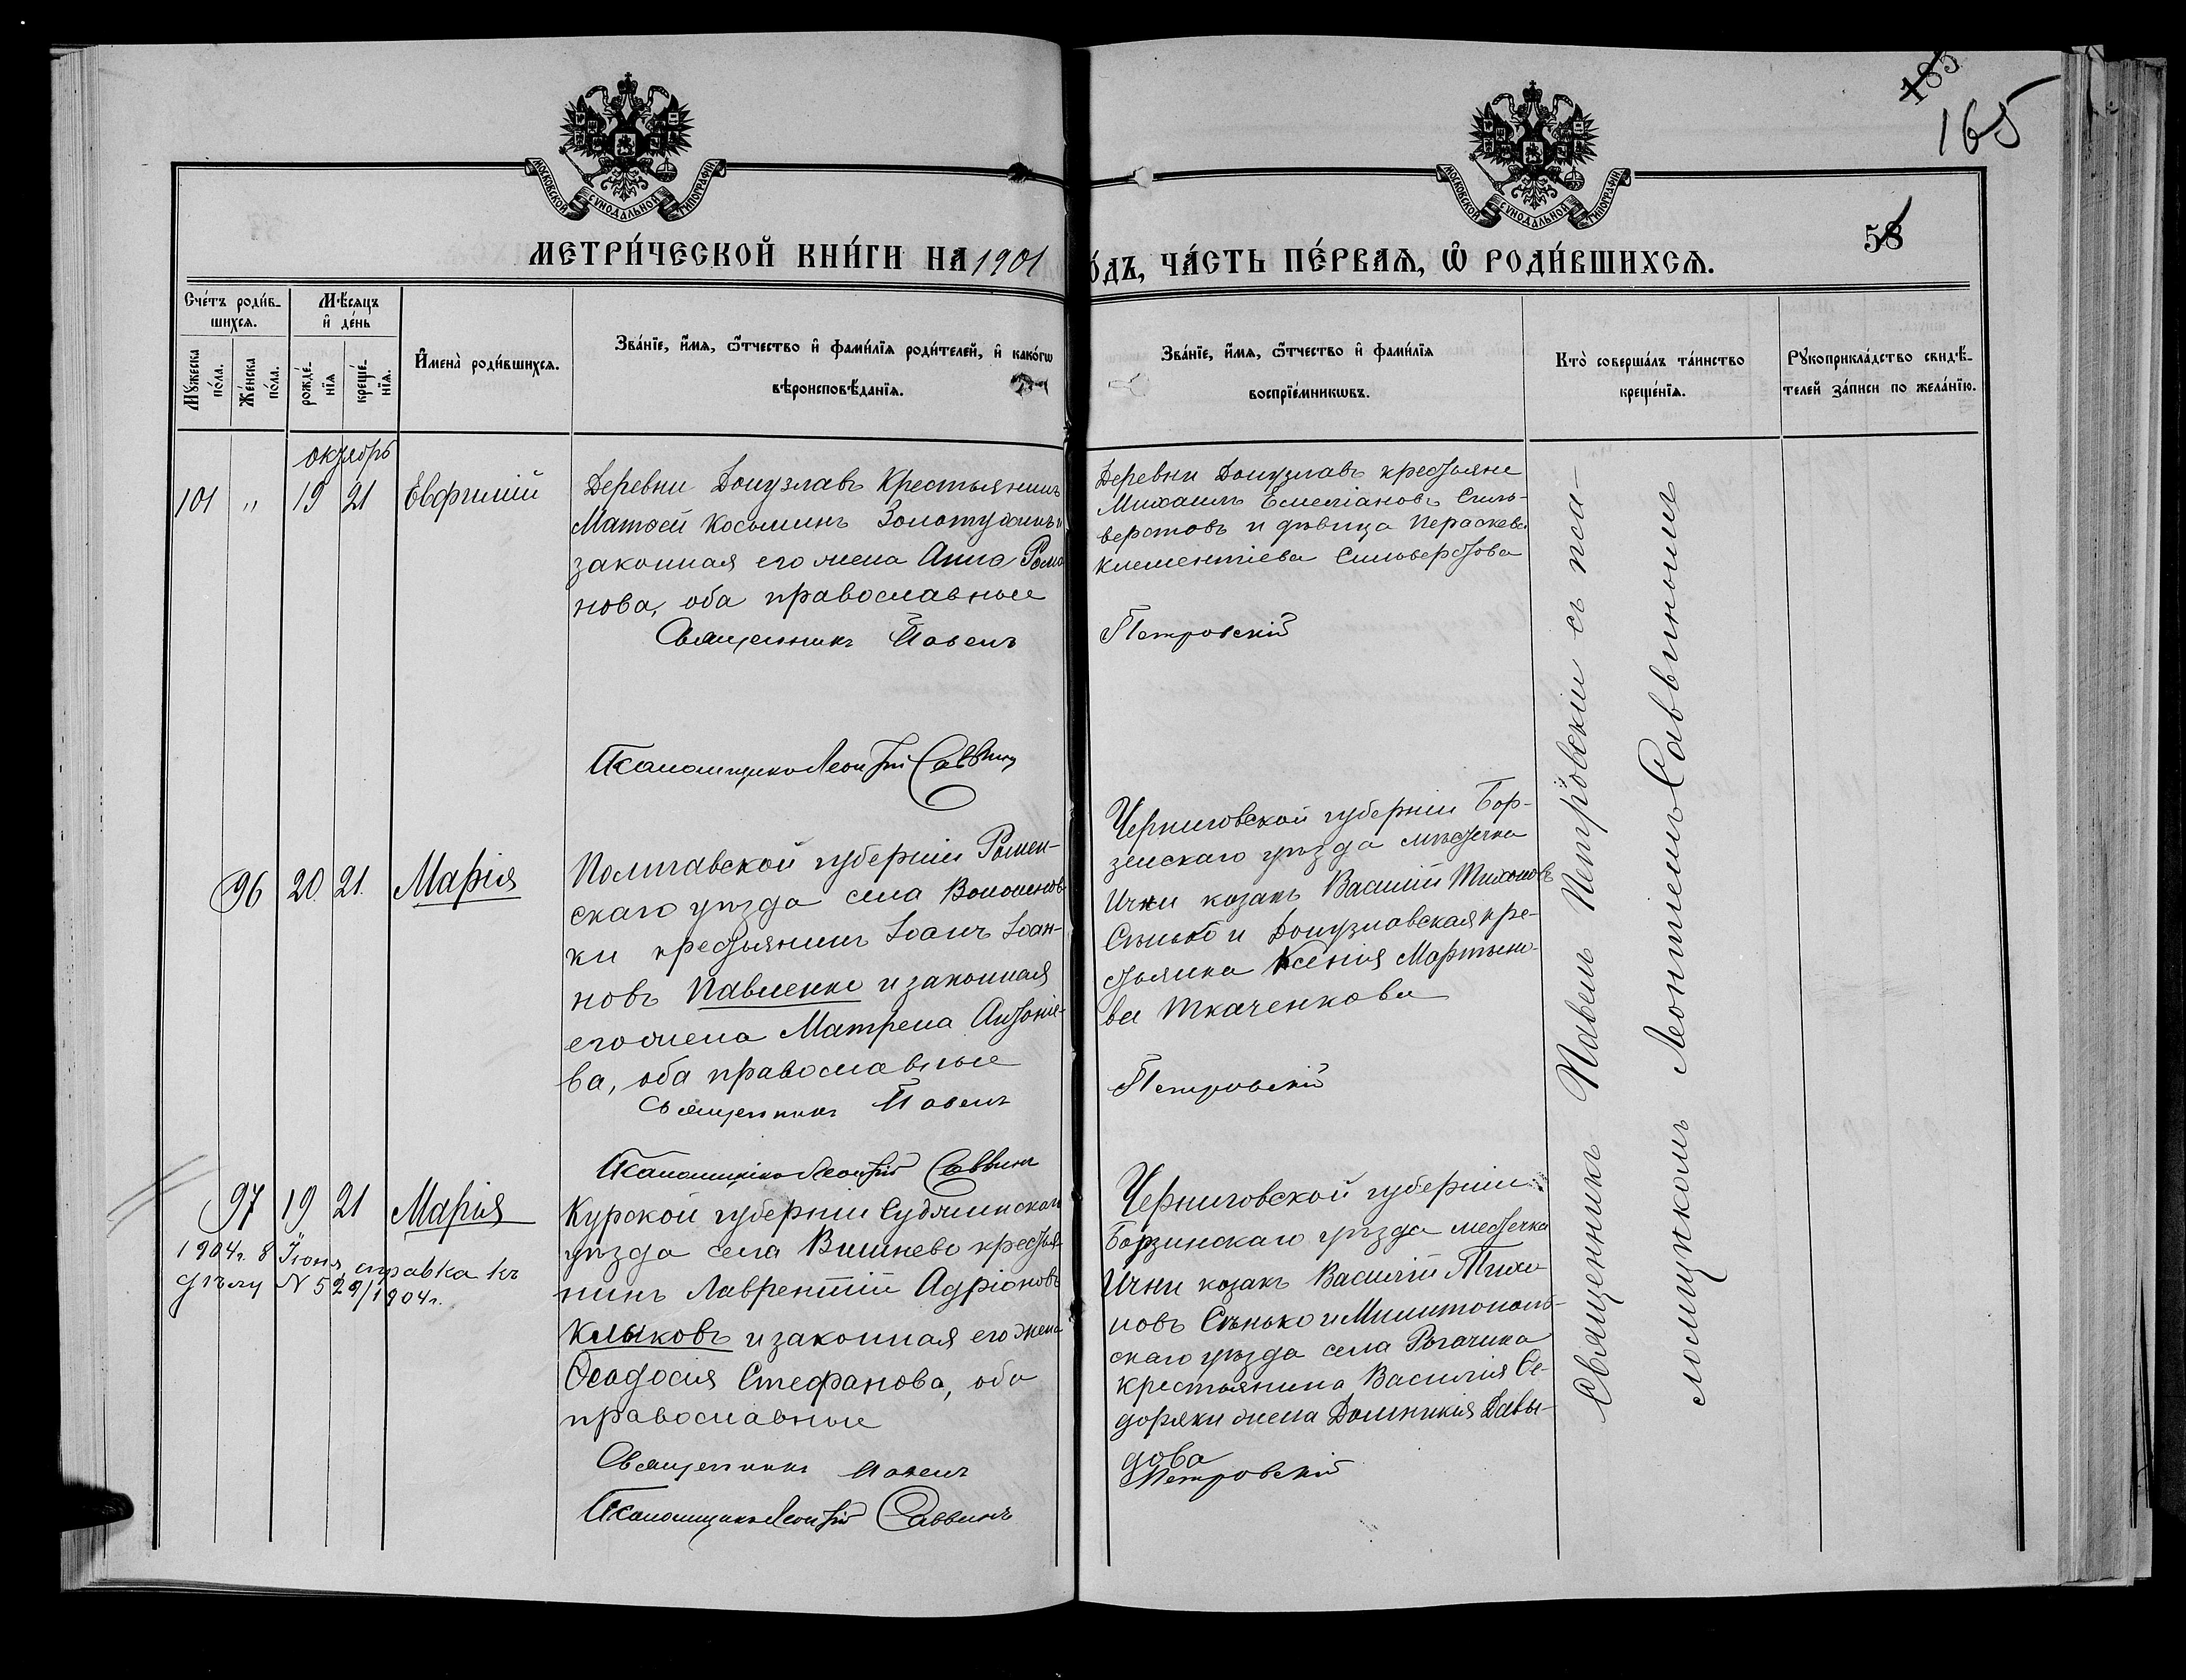 185
165
МОСКОВСКОЙ СУНОДАЛЬНОЙ ТИПОГРАФІИ
МОСКОВСКОЙ СУНОДАЛЬНОЙ ТИПОГРАФІИ
58
МЕТРИ́ЧЕСКОЙ КНИ́ГИ НА 1901
О́ДЪ, ЧА́СТЬ ПЕ́РВАѦ, Ѡ҆ РОДИ́ВШИХСѦ.
Сче́тъ роди́в-
шихсѧ.
Мѣ́сѧцъ
и҆ де́нь
Мꙋ́жеска
по́ла.
Же́нска
по́ла.
рожде́-
нїѧ
креще́-
нїѧ.
И҆мена̀ роди́вшихсѧ.
Зва́нїе, и҆́мѧ, ѻ҆́тчество и҆ фами́лїѧ роди́телей, и҆ како́гѡ
вѣроисповѣ́данїѧ.
Зва́нїе, и҆́мѧ, ѻ҆́тчество и҆ фами́лїѧ
воспрїе́мникѡвъ.
Кто̀ соверша́лъ та́инство
креще́нїѧ.
Рꙋкоприкла́дство свидѣ́-
телей за́писи по жела́нїю.
октябрь
101 " 19 21 Евфимій
Деревни Донузлавъ Крестьянинъ
Матѳей Косьминъ Золотухинъ и
законная его жена Анна Рома
нова, оба православные
Священникъ Павелъ
Псаломщикъ Леонтій Саввинъ
Деревни Донузлавъ крестьяне
Михаилъ Емеліановъ Силь-
верстовъ и дѣвица Параскева
Климентіева Сильверстова
Петровскій
96 20 21 Марія
Полтавской губерніи Ромен-
скаго уѣзда села Волошнов-
ки крестьянинъ Іоанъ Іоан-
новъ Павленко и законная
его жена Матрена Антоніе-
ва, оба православные
Священникъ Павелъ
Псаломщикъ Леонтій Саввинъ
Черниговской губерніи Бор-
зенскаго уѣзда мѣстечка
Ични козакъ Василій Тихоновъ
Сѣнько и Донузлавская кре-
стьянка Ксенія Мартыно-
ва Ткаченкова
Петровскій
97 19 21 Марія
1904 г. 8 Іюня справка къ
дѣлу N 529/1904 г.
Курской губерніи Суджинскаго
уѣзда села Вишнево крестья-
нинъ Лаврентій Адріановъ
Клыковъ и законная его жена
Ѳеодосія Стефанова, оба
православные
Священникъ Павелъ
Псаломщикъ Леонтій Саввинъ
Черниговской губерніи
Борзинскаго уѣзда местечка
Ични козакъ Василій Тихо
новъ Сѣнько и Милитополь-
скаго уѣзда села Рогачика
крестьянина Василія Се-
доряки жена Домникія Давы-
дова
Петровскій
Священникъ Павелъ Петровскій съ пса-
ломщикомъ Леонтіемъ Саввинымъ